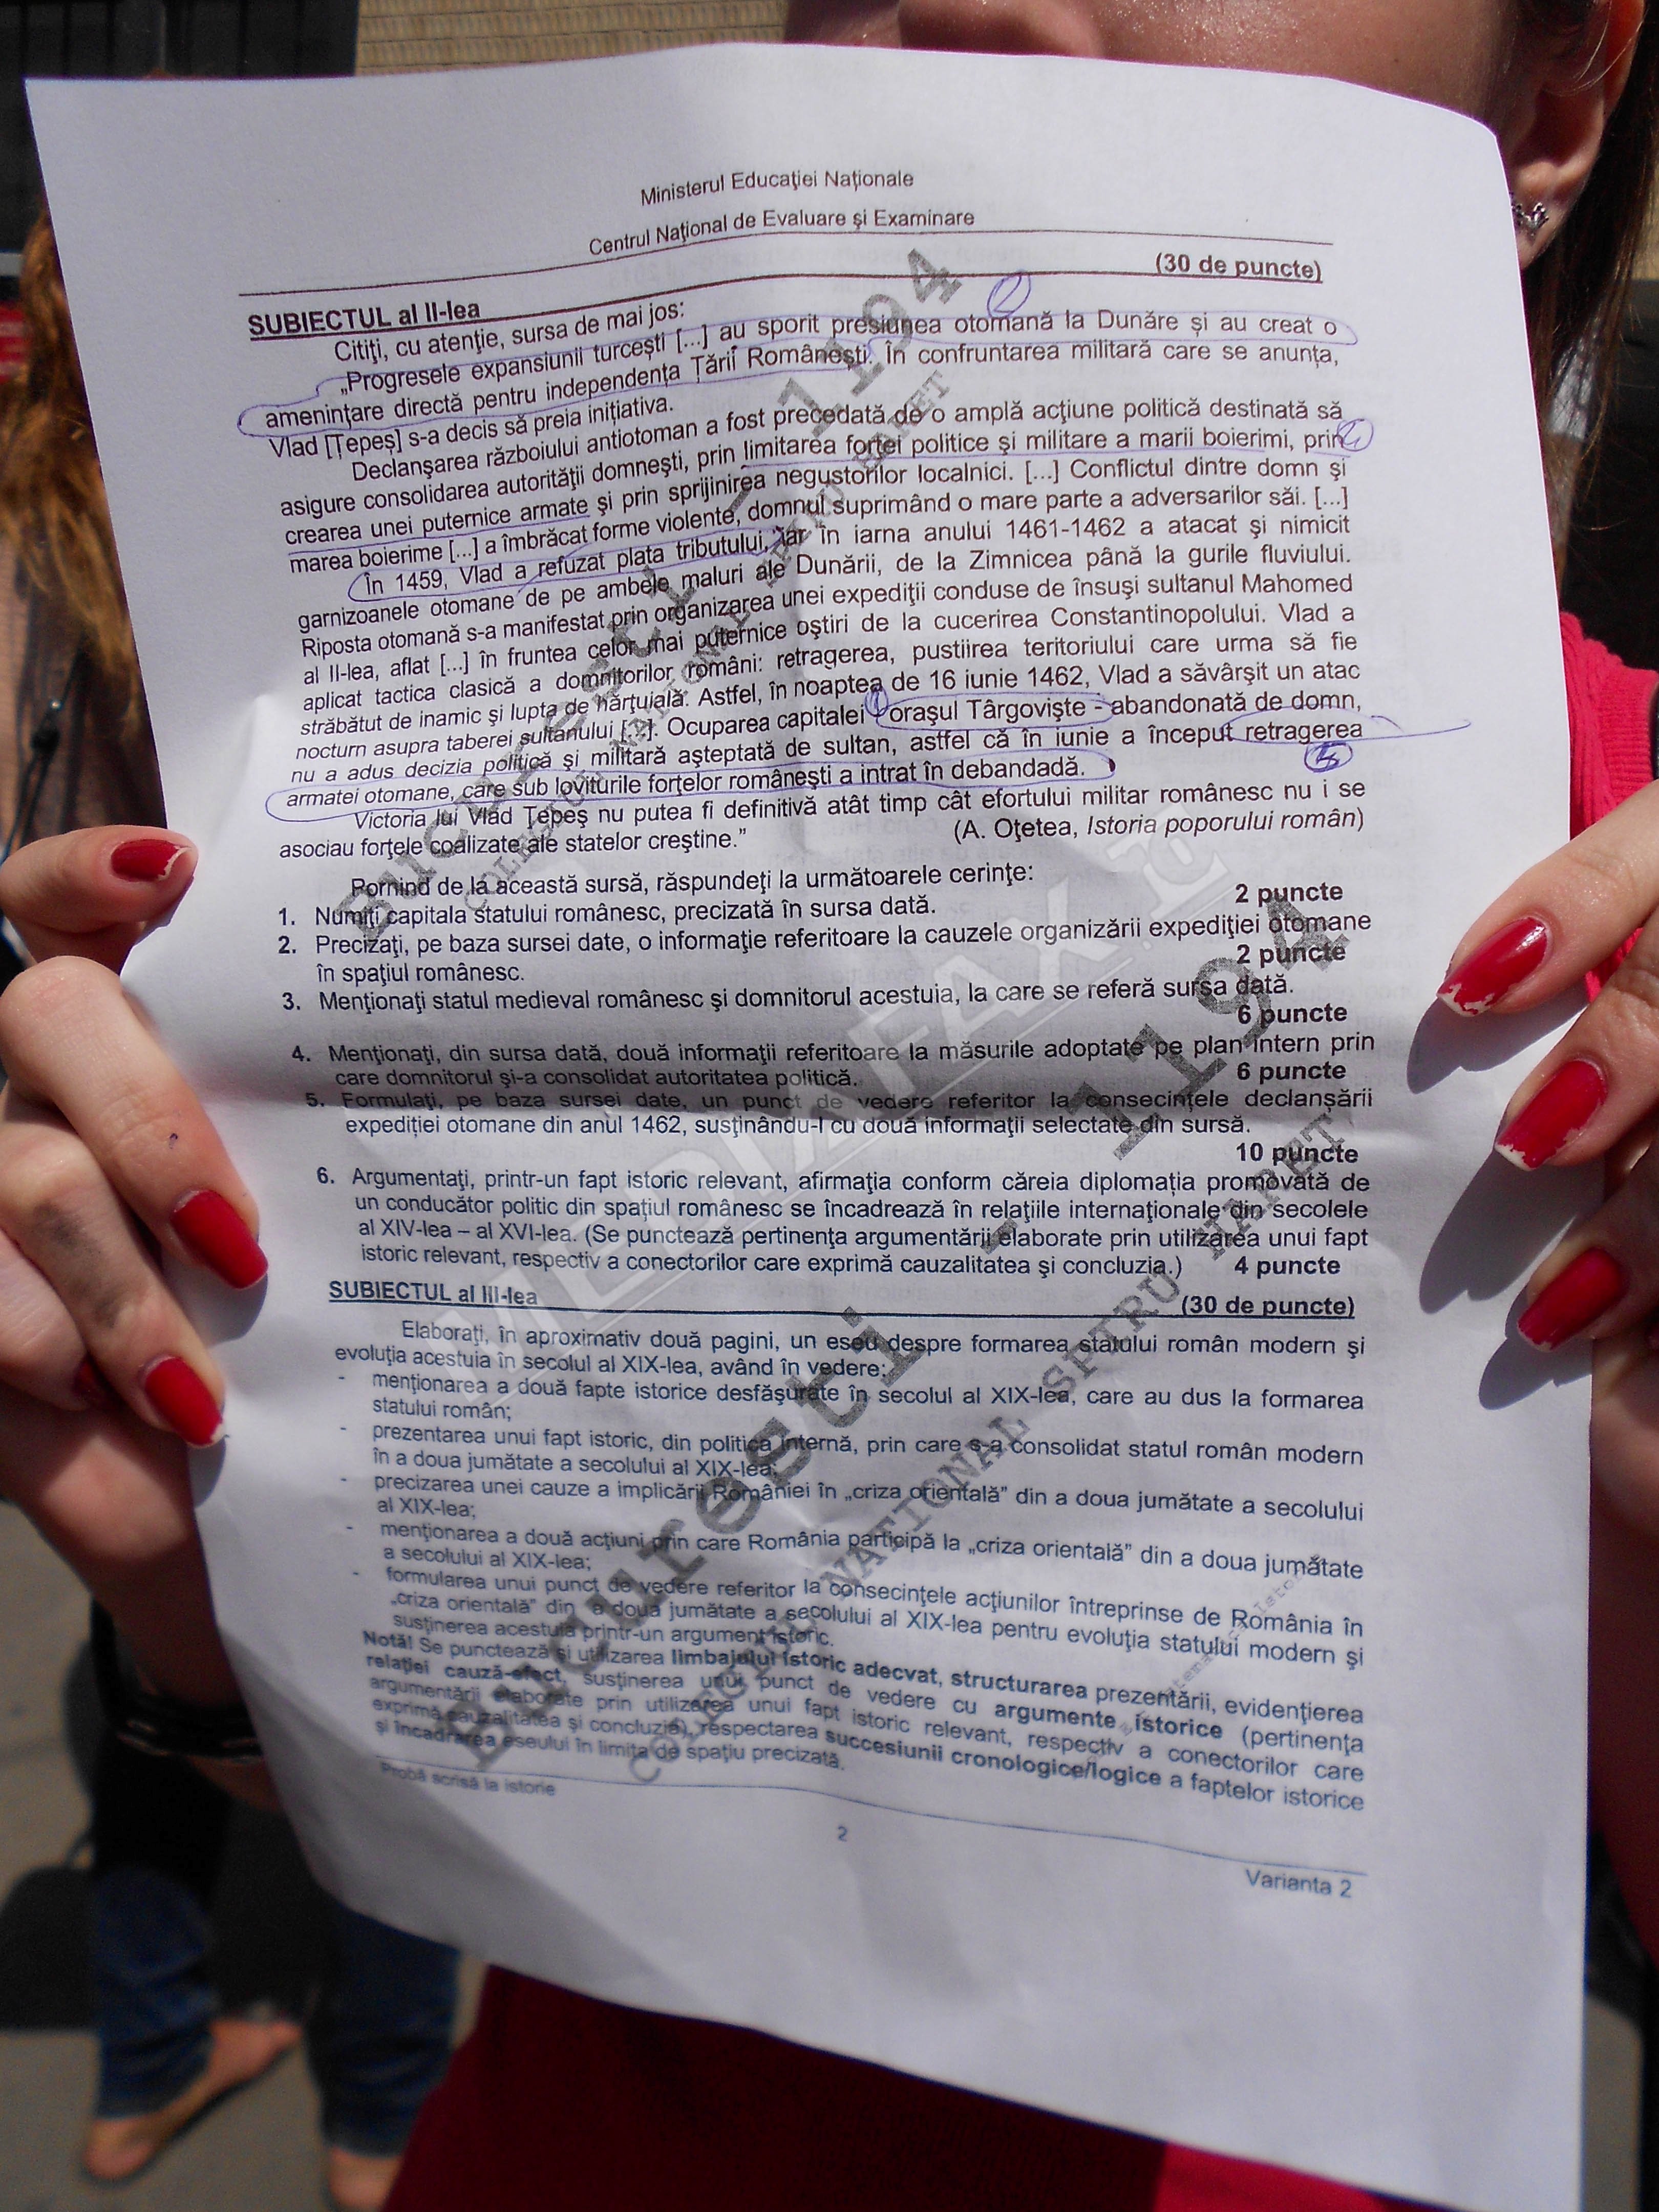 Ministerul Educaţiei Naţionale
Centrul Naţional de Evaluare şi Examinare
SUBIECTUL al II-lea (30 de puncte)
Citiţi, cu atenţie, sursa de mai jos:
„Progresele expansiunii turceşti [...] au sporit presiunea otomană la Dunăre și au creat o
ameninţare directă pentru independenţa Ţării Româneşti. În confruntarea militară care se anunţa,
Vlad [Ţepeş] s-a decis să preia iniţiativa.
Declanşarea războiului antiotoman a fost precedată de o amplă acţiune politică destinată să
asigure consolidarea autorităţii domneşti, prin limitarea forţei politice şi militare a marii boierimi, prin
crearea unei puternice armate şi prin sprijinirea negustorilor localnici. [...] Conflictul dintre domn şi
marea boierime [...] a îmbrăcat forme violente, domnul suprimând o mare parte a adversarilor săi. [...]
În 1459, Vlad a refuzat plata tributului, iar în iarna anului 1461-1462 a atacat şi nimicit
garnizoanele otomane de pe ambele maluri ale Dunării, de la Zimnicea până la gurile fluviului.
Riposta otomană s-a manifestat prin organizarea unei expediţii conduse de însuşi sultanul Mahomed
al II-lea, aflat [...] în fruntea celor mai puternice oştiri de la cucerirea Constantinopolului. Vlad a
aplicat tactica clasică a domnitorilor români: retragerea, pustiirea teritoriului care urma să fie
străbătut de inamic şi lupta de hărţuială. Astfel, în noaptea de 16 iunie 1462, Vlad a săvârşit un atac
nocturn asupra taberei sultanului [...]. Ocuparea capitalei - oraşul Târgovişte - abandonată de domn,
nu a adus decizia politică şi militară aşteptată de sultan, astfel că în iunie a început retragerea
armatei otomane, care sub loviturile forţelor româneşti a intrat în debandadă.
Victoria lui Vlad Ţepeş nu putea fi definitivă atât timp cât efortului militar românesc nu i se
asociau forţele coalizate ale statelor creştine.” (A. Oţetea, Istoria poporului român)
Pornind de la această sursă, răspundeţi la următoarele cerinţe:
1. Numiţi capitala statului românesc, precizată în sursa dată. 2 puncte
2. Precizaţi, pe baza sursei date, o informaţie referitoare la cauzele organizării expediţiei otomane
în spaţiul românesc. 2 puncte
3. Menţionaţi statul medieval românesc şi domnitorul acestuia, la care se referă sursa dată.
6 puncte
4. Menţionaţi, din sursa dată, două informaţii referitoare la măsurile adoptate pe plan intern prin
care domnitorul şi-a consolidat autoritatea politică. 6 puncte
5. Formulaţi, pe baza sursei date, un punct de vedere referitor la consecinţele declanşării
expediţiei otomane din anul 1462, susţinându-l cu două informaţii selectate din sursă.
10 puncte
6. Argumentaţi, printr-un fapt istoric relevant, afirmaţia conform căreia diplomaţia promovată de
un conducător politic din spaţiul românesc se încadrează în relaţiile internaţionale din secolele
al XIV-lea – al XVI-lea. (Se punctează pertinenţa argumentării elaborate prin utilizarea unui fapt
istoric relevant, respectiv a conectorilor care exprimă cauzalitatea şi concluzia.) 4 puncte
SUBIECTUL al III-lea (30 de puncte)
Elaboraţi, în aproximativ două pagini, un eseu despre formarea statului român modern şi
evoluţia acestuia în secolul al XIX-lea, având în vedere:
- menţionarea a două fapte istorice desfăşurate în secolul al XIX-lea, care au dus la formarea
statului român;
- prezentarea unui fapt istoric, din politica internă, prin care s-a consolidat statul român modern
în a doua jumătate a secolului al XIX-lea;
- precizarea unei cauze a implicării României în „criza orientală” din a doua jumătate a secolului
al XIX-lea;
- menţionarea a două acţiuni prin care România participă la „criza orientală” din a doua jumătate
a secolului al XIX-lea;
- formularea unui punct de vedere referitor la consecinţele acţiunilor întreprinse de România în
„criza orientală” din a doua jumătate a secolului al XIX-lea pentru evoluţia statului modern şi
susţinerea acestuia printr-un argument istoric.
Notă! Se punctează şi utilizarea limbajului istoric adecvat, structurarea prezentării, evidenţierea
relaţiei cauză-efect, susţinerea unui punct de vedere cu argumente istorice (pertinenţa
argumentării elaborate prin utilizarea unui fapt istoric relevant, respectiv a conectorilor care
exprimă cauzalitatea şi concluzia), respectarea succesiunii cronologice/logice a faptelor istorice
şi încadrarea eseului în limita de spaţiu precizată.
Probă scrisă la istorie
2
Varianta 2
Bucuresti - 1194
COLEGIUL NATIONAL SPIRU HARET
Bucuresti - 1194
COLEGIUL NATIONAL SPIRU HARET
MEDIAFAX